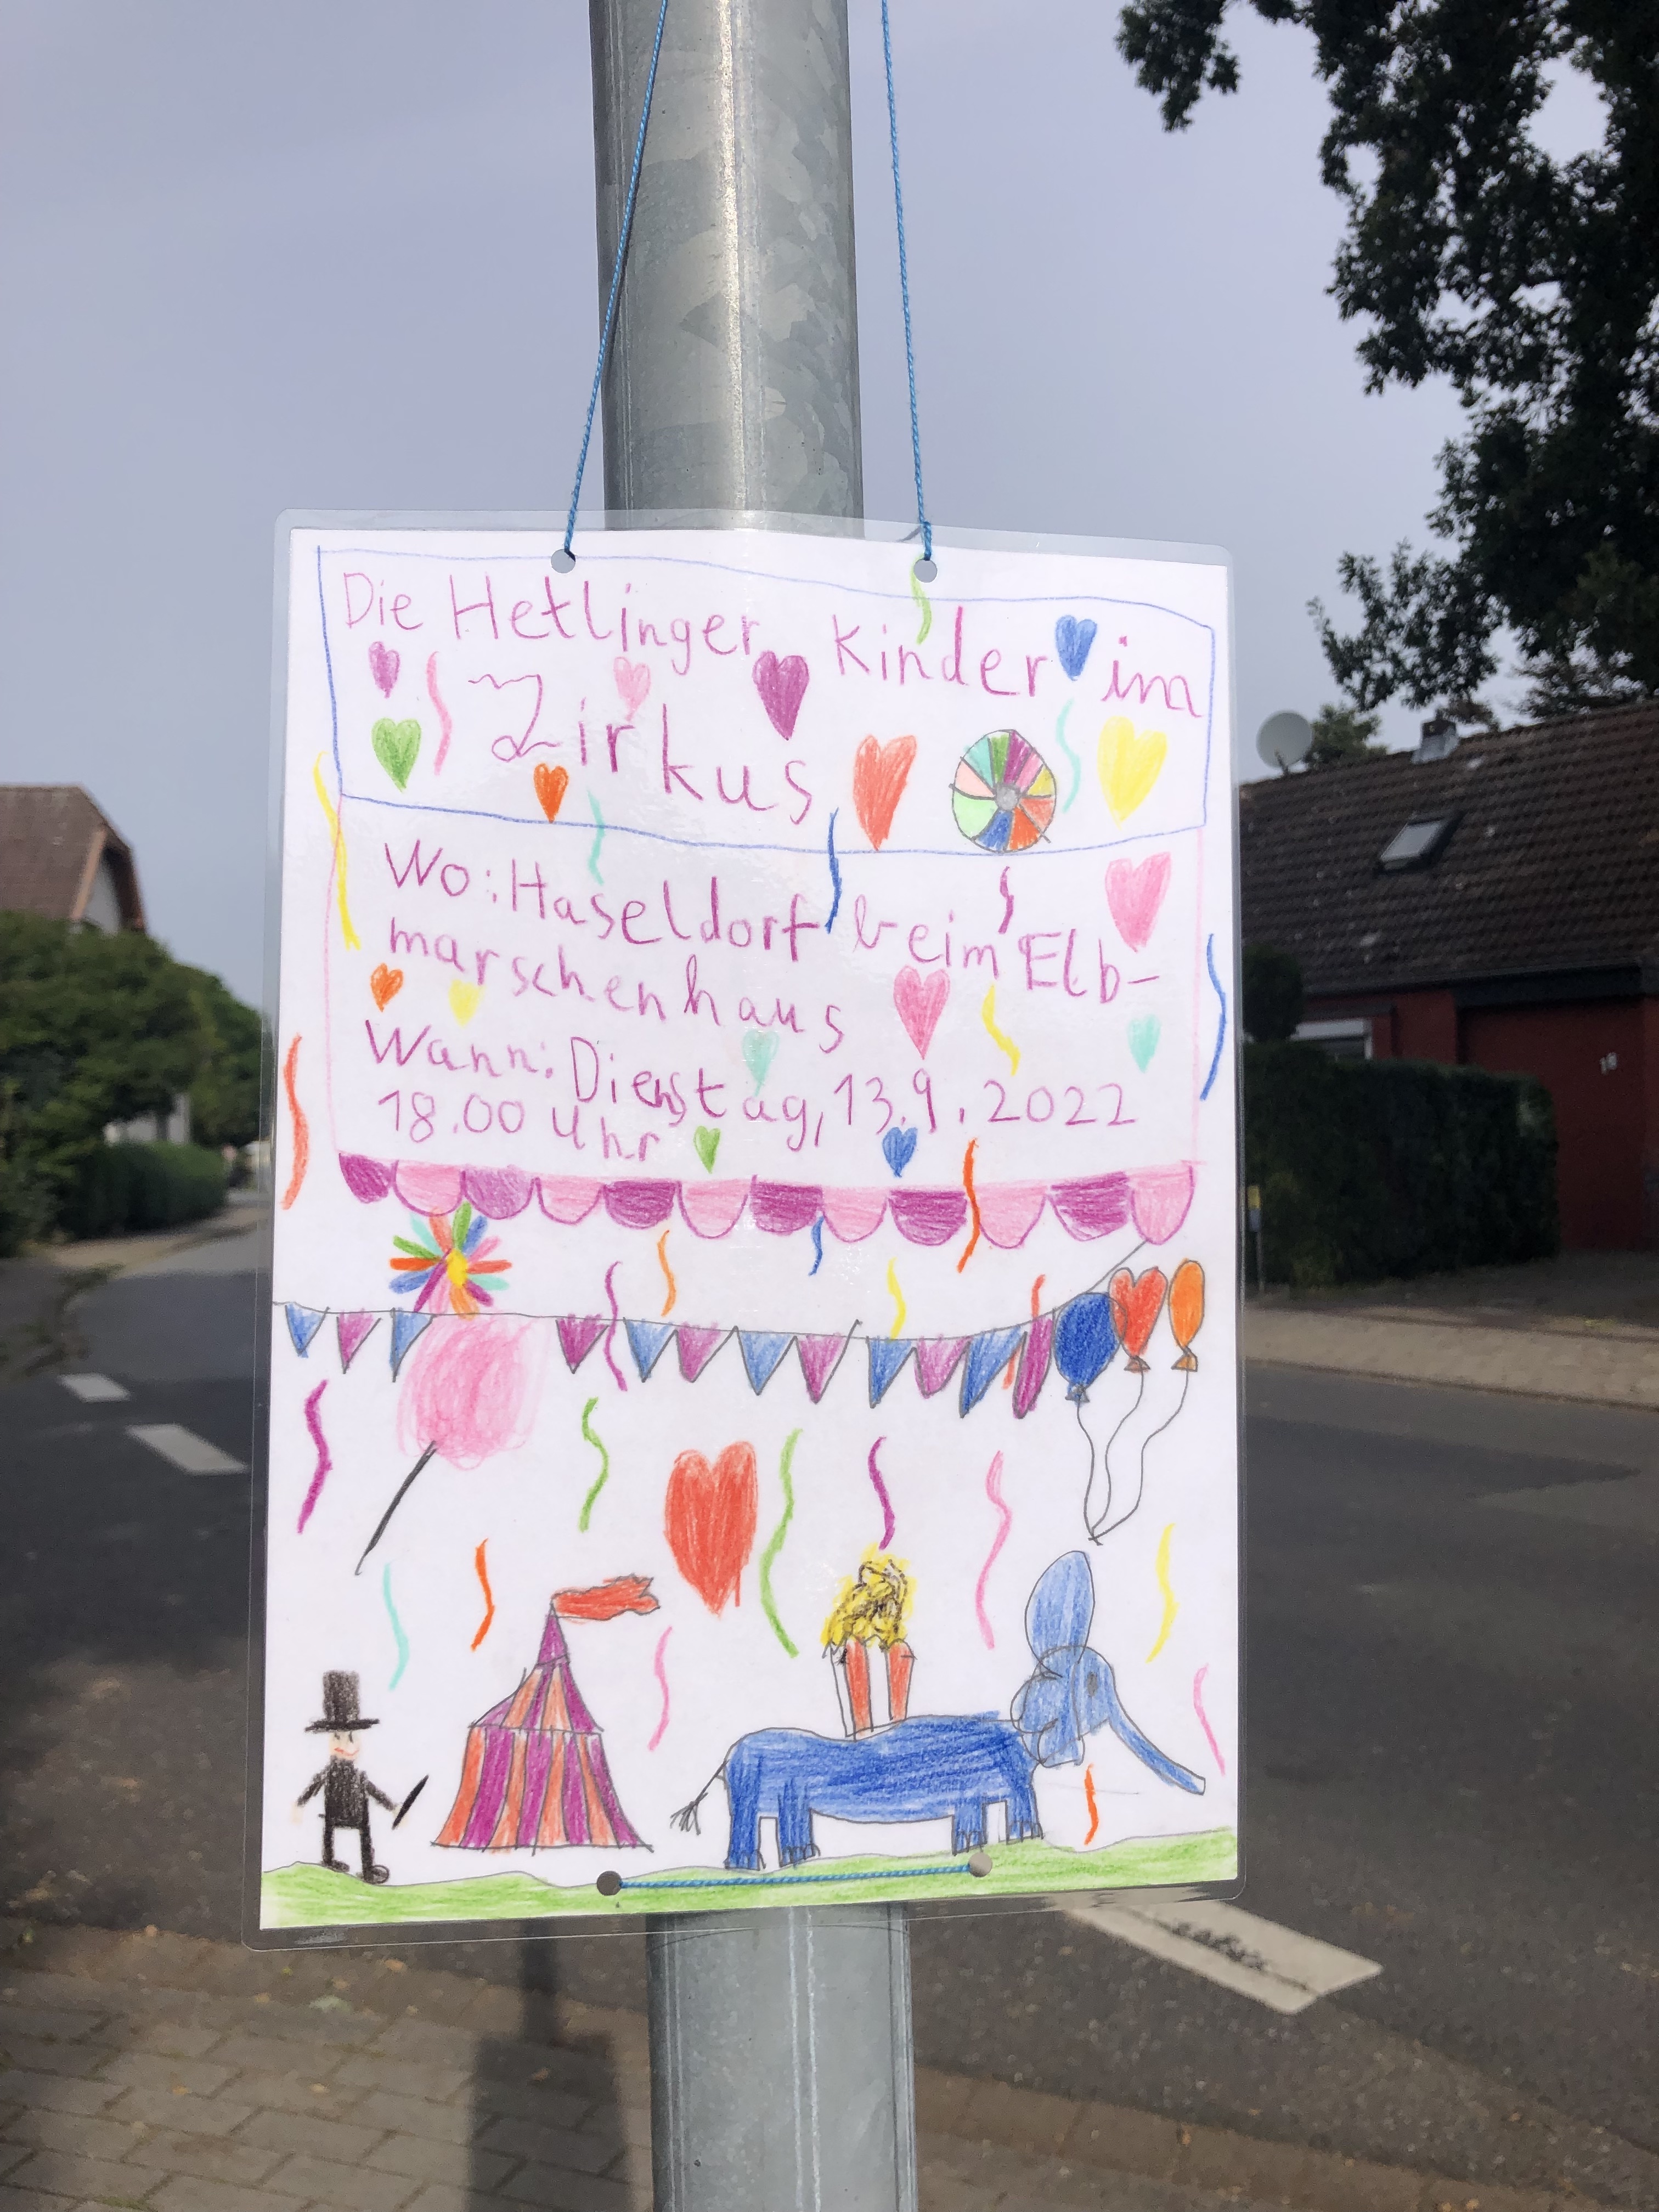 Die Hetlinger Kinder im
Zirkus
Wo: Haseldorf beim Elb-
marschenhaus
Wann: Dienstag, 13.9.2022
18.00 Uhr
18